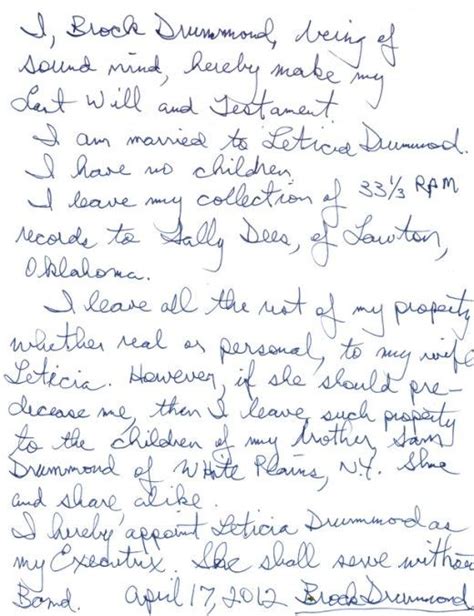 I, Brock Drummond, being of
sound mind, hereby make my
Last Will and Testament.
I am married to Leticia Drummond.
I have no children.
I leave my collection of 33 1/3 RPM
records to Sally Dees, of Lawton,
Oklahoma.
I leave all the rest of my property
whether real or personal, to my wife
Leticia. However, if she should pre-
decease me, then I leave such property
to the children of my brother, Sam
Drummond of White Plains, N.Y. Share
and share alike.
I hereby appoint Leticia Drummond as
my Executrix. She shall serve without
Bond. April 17, 2012 Brock Drummond